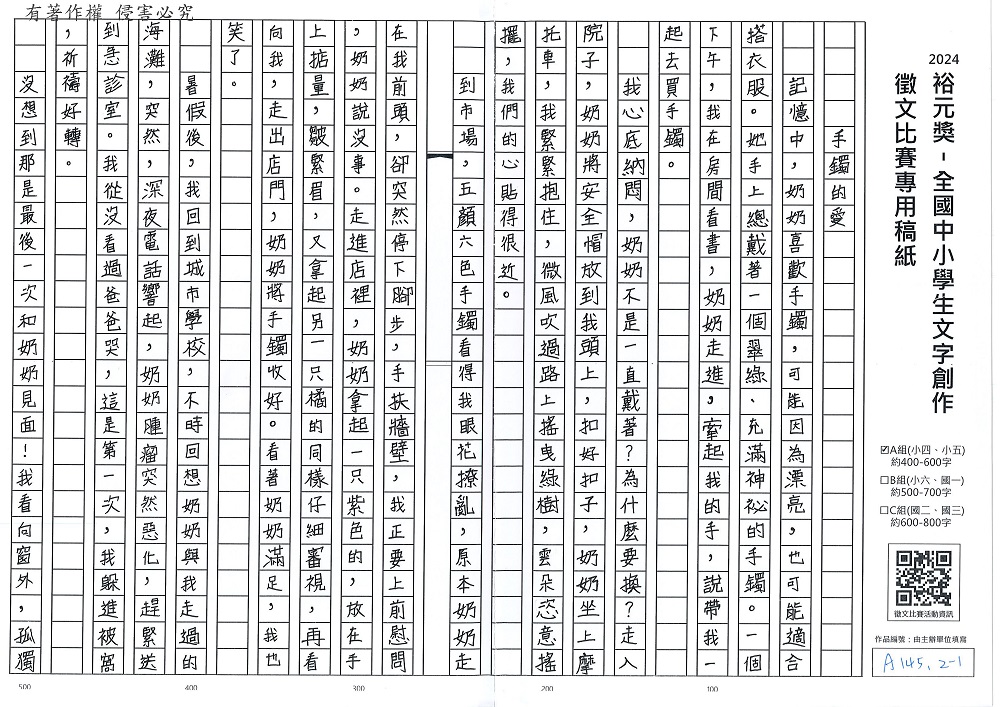 有著作權 侵害必究
2024
裕元獎-全國中小學生文字創作
徵文比賽專用稿紙
☑A組(小四、小五)
約400-600字
□B組(小六、國一)
約500-700字
□C組(國二、國三)
約600-800字
徵文比賽活動資訊
作品編號：由主辦單位填寫
A145, 2-1
手鐲的愛
記憶中，奶奶喜歡手鐲，可能因為漂亮，也可能適合
搭衣服。她手上總戴著一個翠綠、充滿神祕的手鐲。一個
下午，我在房間看書，奶奶走進，牽起我的手，說帶我一
起去買手鐲。
我心底納悶，奶奶不是一直戴著？為什麼要換？走入
院子，奶奶將安全帽放到我頭上，扣好扣子，奶奶坐上摩
托車，我緊緊抱住，微風吹過路上搖曳綠樹，雲朵恣意搖
擺，我們的心貼得很近。
到市場，五顏六色手鐲看得我眼花撩亂，原本奶奶走
在我前頭，卻突然停下腳步，手扶牆壁，我正要上前慰問
，奶奶說沒事。走進店裡，奶奶拿起一只紫色的，放在手
上掂量，皺緊眉，又拿起另一只橘的同樣仔細審視，再看
向我，走出店門，奶奶將手鐲收好。看著奶奶滿足，我也
笑了。
暑假後，我回到城市學校，不時回想奶奶與我走過的
海灘，突然，深夜電話響起，奶奶腫瘤突然惡化，趕緊送
到急診室。我從沒看過爸爸哭，這是第一次，我躲進被窩
，祈禱好轉。
沒想到那是最後一次和奶奶見面！我看向窗外，孤獨
100
200
300
400
500